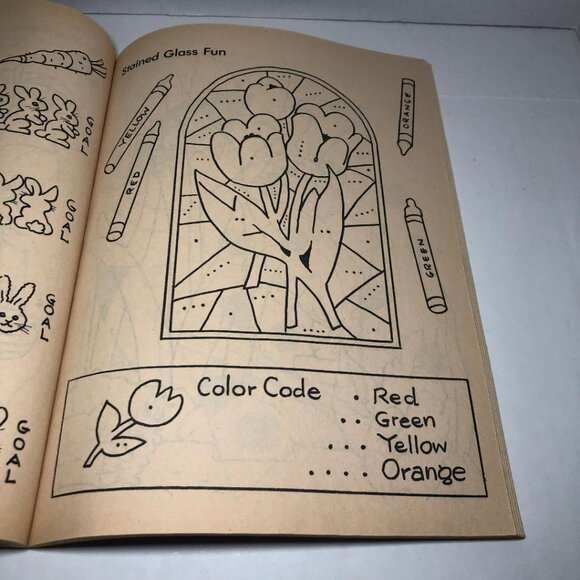 GOAL
GOAL
GOAL
GOAL
Stained Glass Fun
YELLOW
RED
ORANGE
GREEN
Color Code
. Red
. . Green
. . . Yellow
. . . . Orange